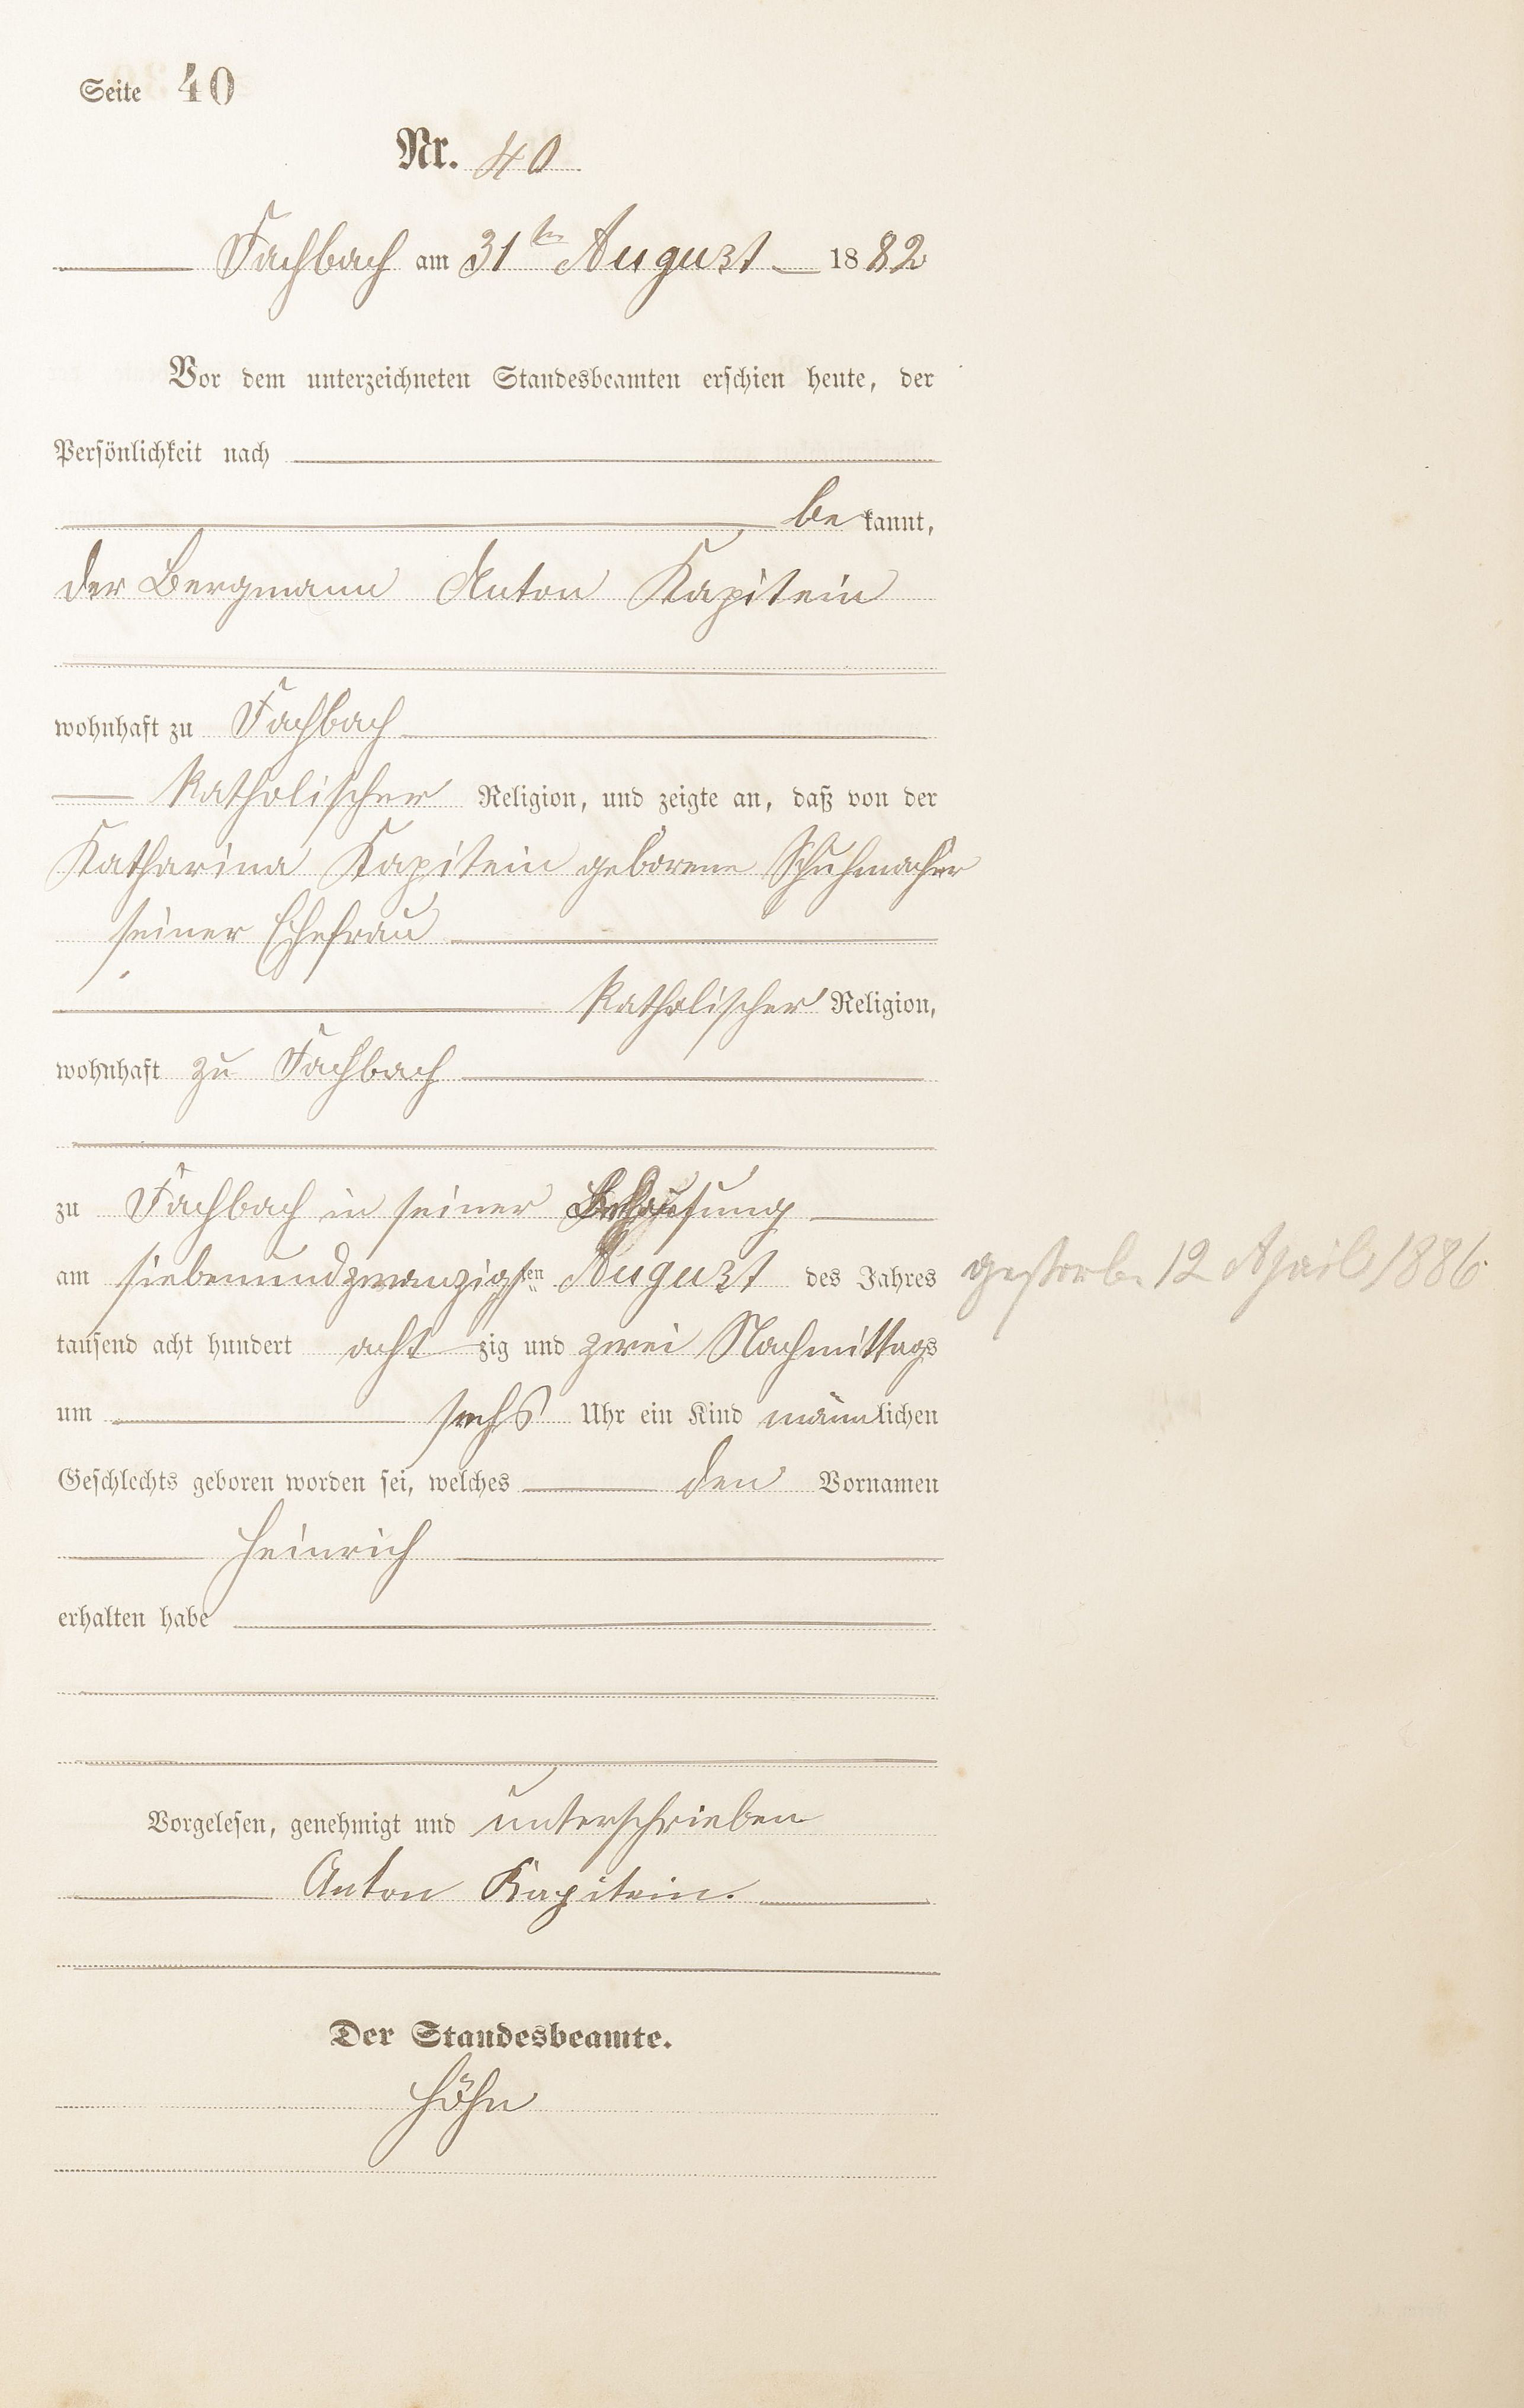 Seite 40
Nr. 40
Fachbach am 31ten August 1882
Vor dem unterzeichneten Standesbeamten erschien heute, der
Persönlichkeit nach
bekannt,
der Bergmann Anton Kapitein
wohnhaft zu Fachbach
katholischer Religion, und zeigte an, daß von der
Katharina Kapitein geborene Schuhmacher
seiner Ehefrau
katholischer Religion,
wohnhaft zu Fachbach
zu Fachbach in seiner Behausung
am siebenundzwanzigsten August des Jahres
gestorben 12 April 1886
tausend acht hundert achtzig und zwei Nachmittags
um sechs Uhr ein Kind männlichen
Geschlechts geboren worden sei, welches den Vornamen
Heinrich
erhalten habe
Vorgelesen, genehmigt und unterschrieben
Anton Kapitein.
Der Standesbeamte.
Höhn